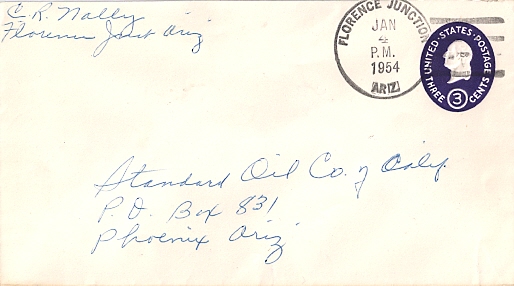 C. R. Nally
Florence Junct Ariz
FLORENCE JUNCTION
JAN
4
P.M.
1954
ARIZ
UNITED · STATES · POSTAGE
THREE 3 CENTS
Standard Oil Co. of Calif
P. O. Box 831
Phoenix Ariz